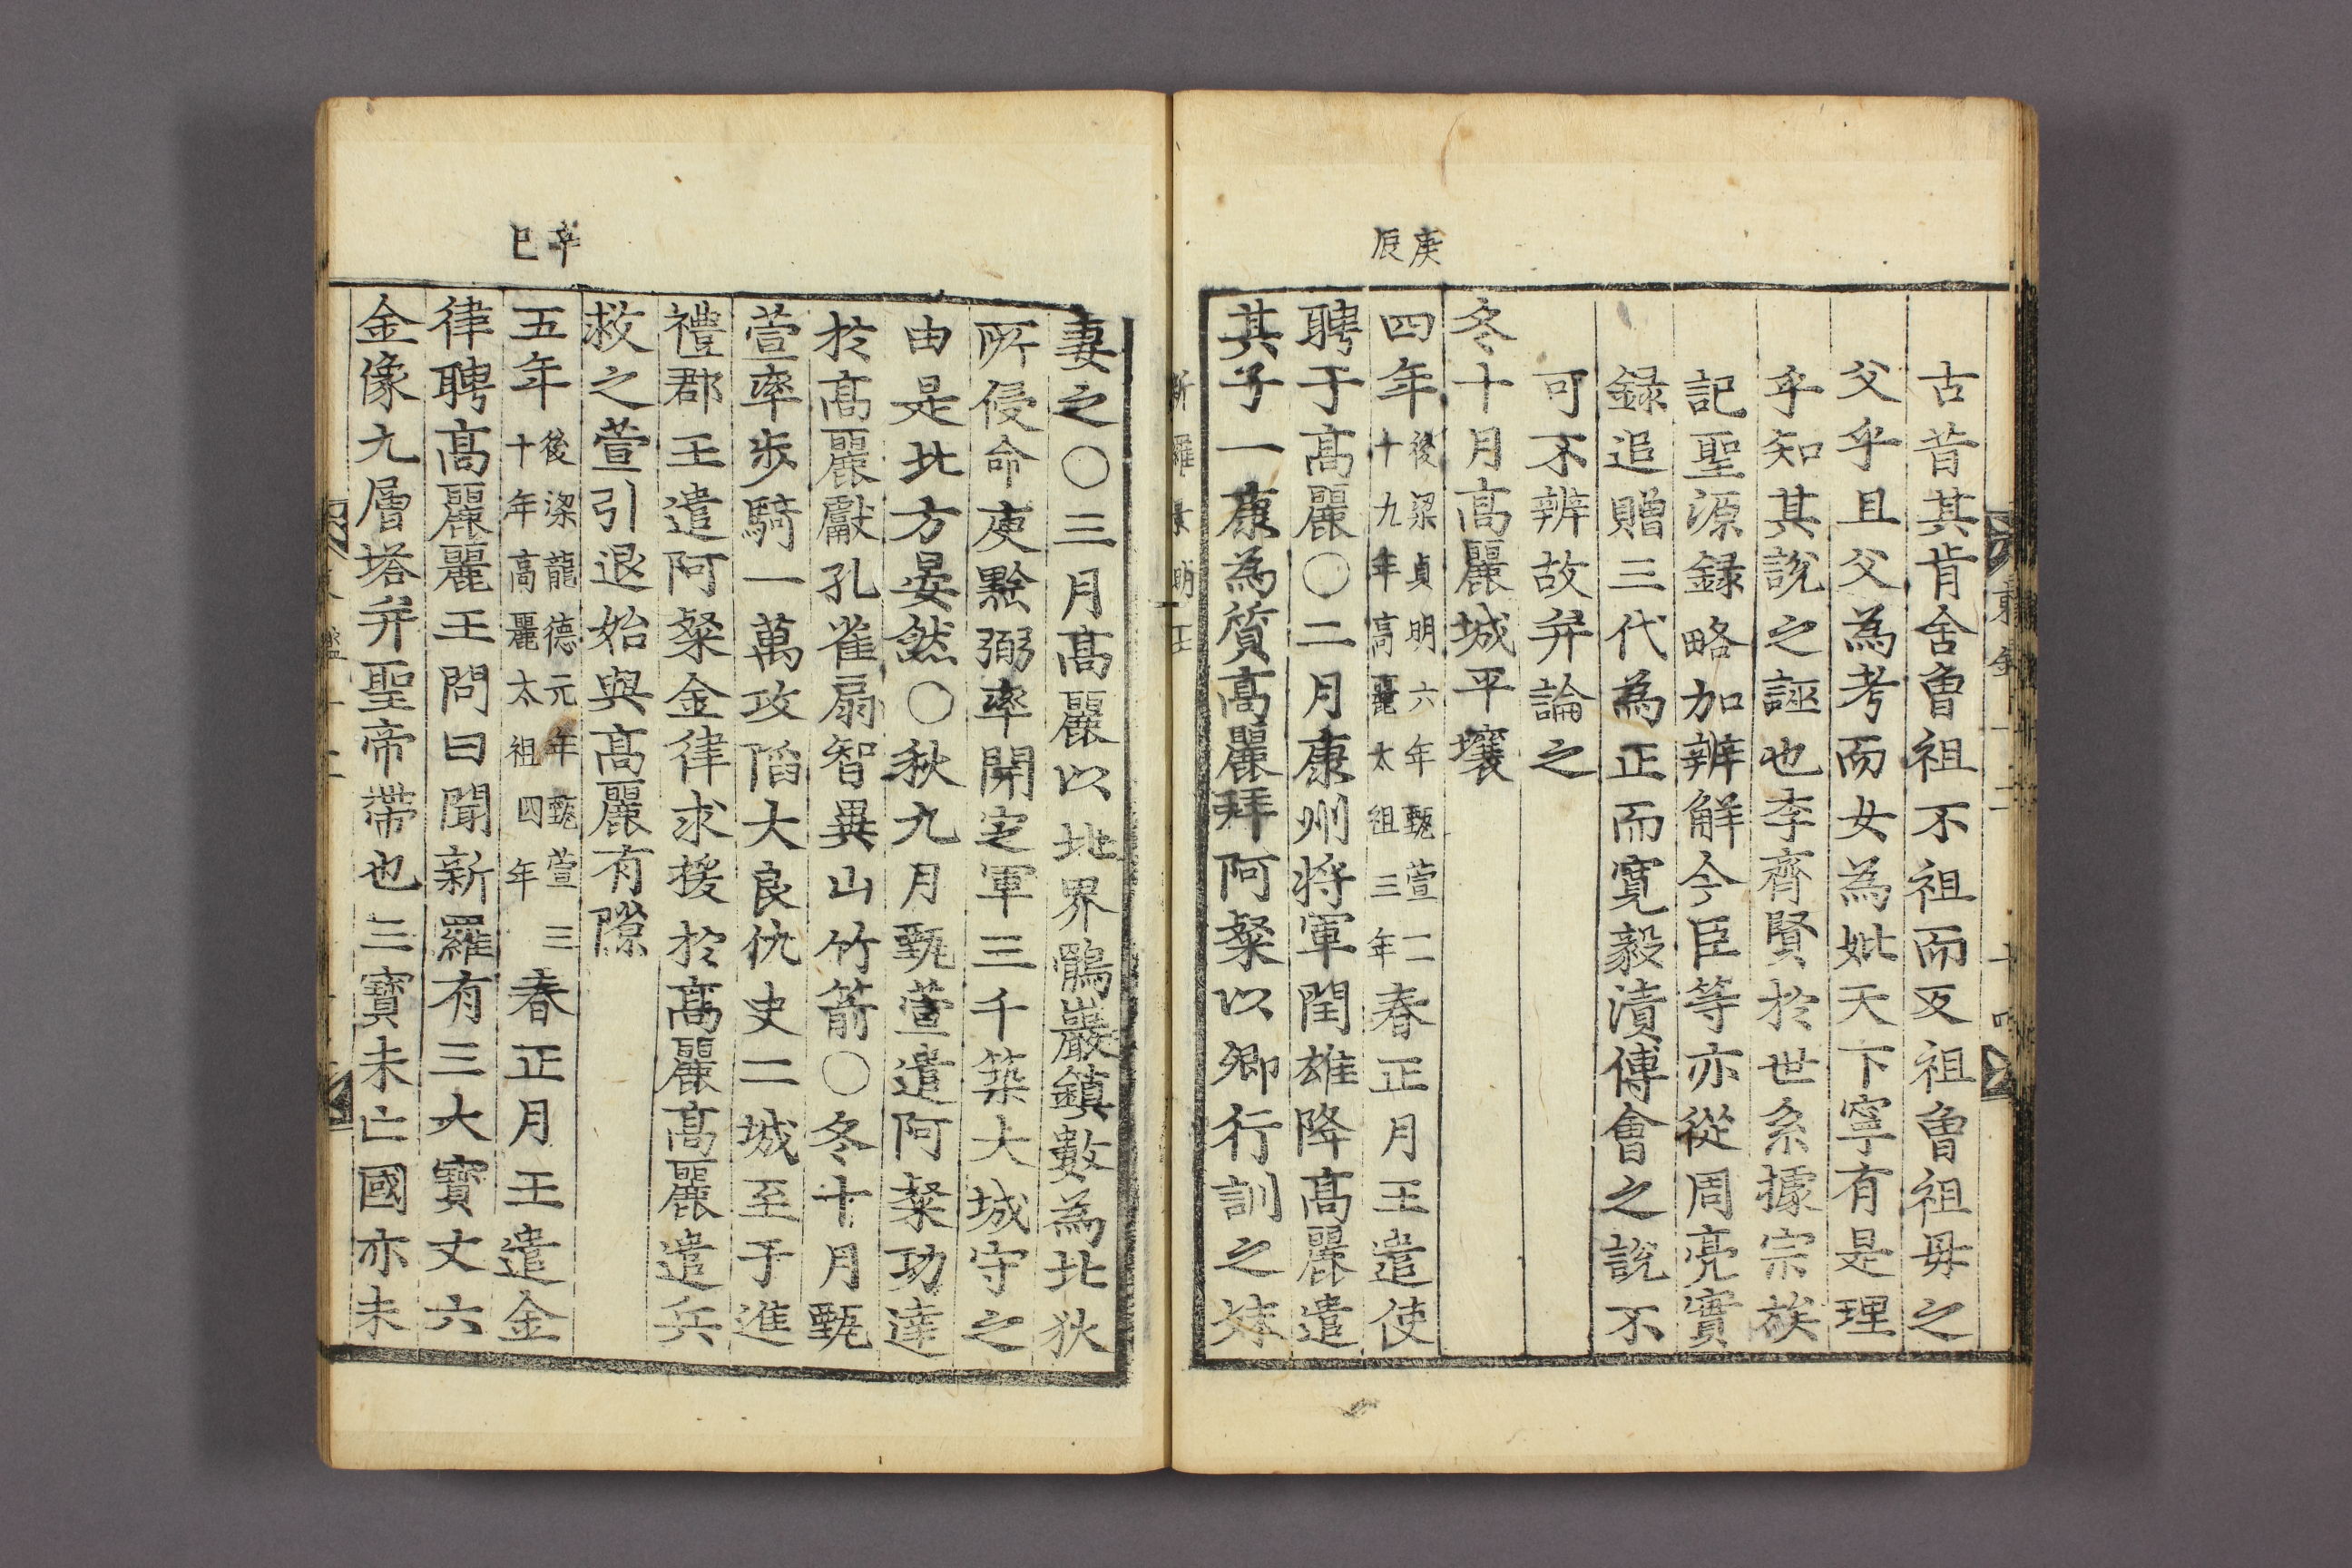 庚辰
古昔其肯舍曾祖不祖而反祖曾祖母之
父乎且父爲考而女爲妣天下寧有是理
乎知其說之誣也李齊賢於世系據宗族
記聖源録略加辨解今臣等亦從周亮實
録追贈三代爲正而寬毅瀆傅會之說不
可不辨故并論之
冬十月高麗城平壤
四年後梁貞明六年甄萱二十九年高麗太祖三年春正月王遣使
聘于高麗〇二月康州將軍閏雄降高麗遣
其子一康爲質高麗拜阿粲以卿行訓之妹
辛巳
妻之〇三月高麗以北界鶻巖鎮數爲北狄
所侵命庾黔弼率開定軍三千築大城守之
由是北方晏然〇秋九月甄萱遣阿粲功達
於高麗獻孔雀扇智異山竹箭〇冬十月甄
萱率步騎一萬攻陷大良仇史二城至于進
禮郡王遣阿粲金律求援於高麗高麗遣兵
救之萱引退始與高麗有隙
五年後梁龍德元年甄萱三十年高麗太祖四年春正月王遣金
律聘高麗麗王問曰聞新羅有三大寶丈六
金像九層塔并聖帝帶也三寶未亡國亦未